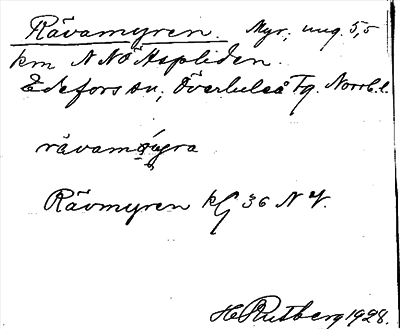 Rävamyren. Myr, ung. 5,5
km NNO Aspliden.
Edefors sn, Överluleå Tg. Norrb. l.
rävamýra
Rävmyren kG 36 NV.
H. Rutberg 1928.